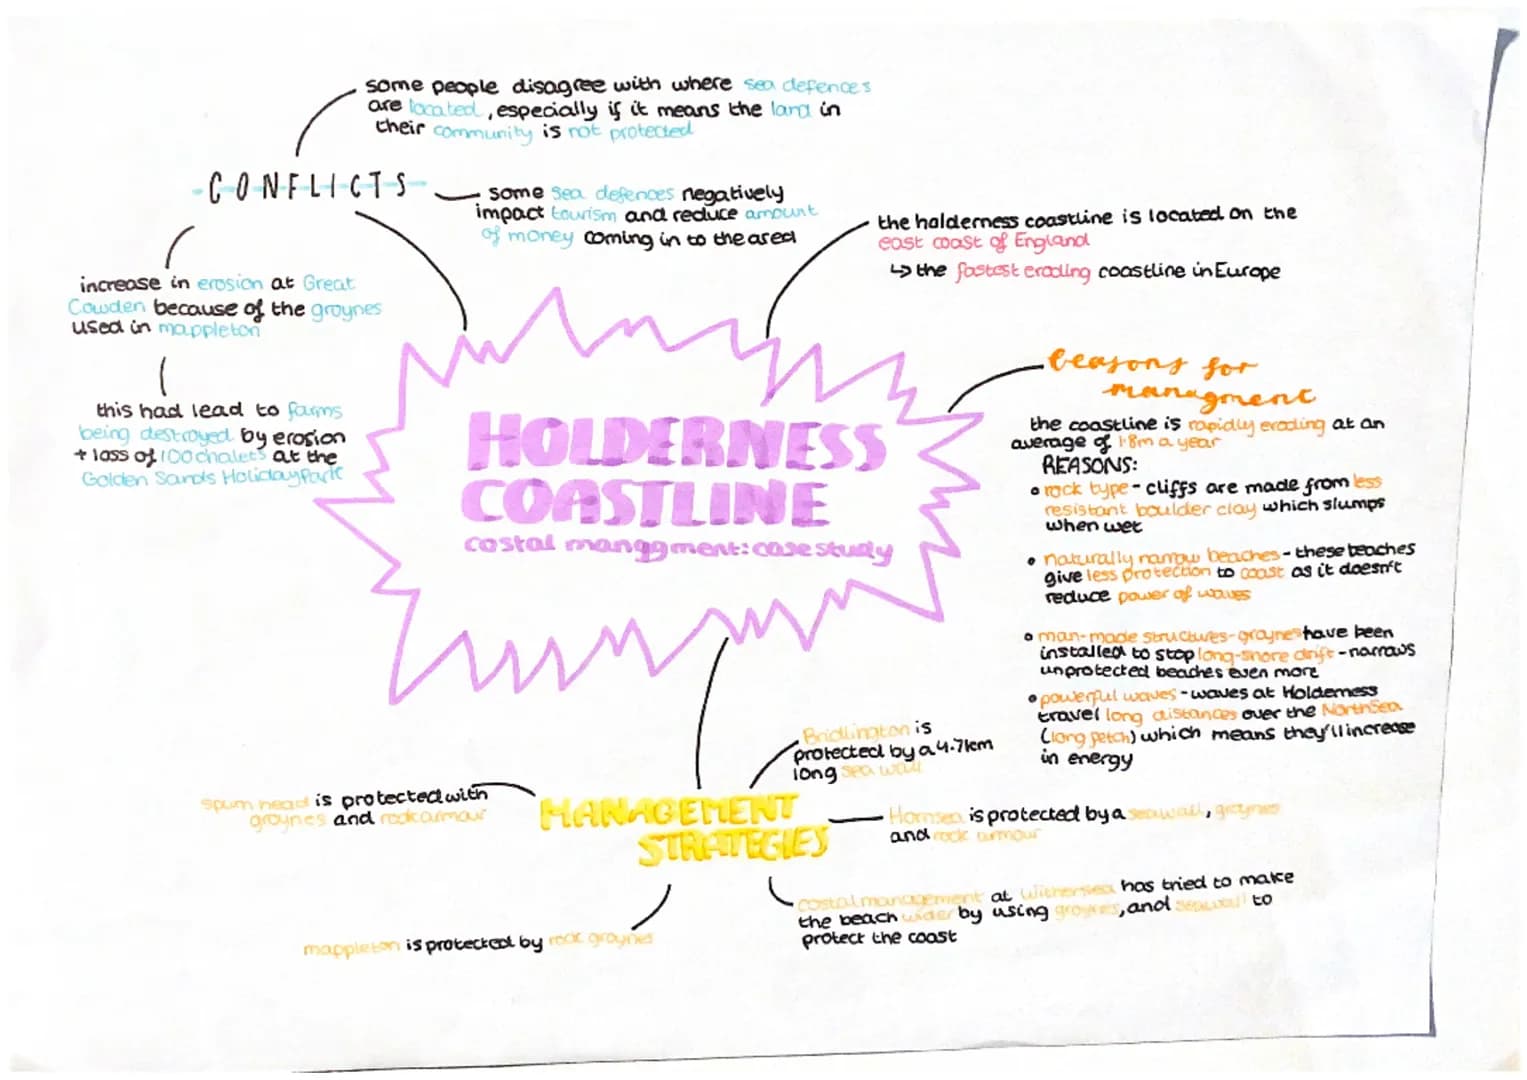 some people disagree with where sea defences
are located, especially if it means the land in
their community is not protected
CONFLICTS
some sea defences negatively
impact tourism and reduce amount
of money coming in to the area
increase in erosion at Great
Cowden because of the groynes
used in mappleton
this had lead to farms
being destroyed by erosion
+ loss of 100 chalets at the
Golden Sands Holiday Park
the holderness coastline is located on the
east coast of England
↳ the fastest eroding coastline in Europe
HOLDERNESS
COASTLINE
costal managment: case study
reasons for
managment
the coastline is rapidly eroding at an
average of 1.8m a year
REASONS:
• rock type - cliffs are made from less
resistant boulder clay which slumps
when wet
• naturally narrow beaches - these beaches
give less protection to coast as it doesn't
reduce power of waves
• man-made structures - groynes have been
installed to stop long-shore drift - narrows
unprotected beaches even more
• powerful waves - waves at Holderness
travel long distances over the North Sea
(long fetch) which means they'll increase
in energy
MANAGEMENT
STRATEGIES
Bridlington is
protected by a 4.7km
long sea wall
Hornsea is protected by a seawall, groynes
and rock armour
costal management at Withernsea has tried to make
the beach wider by using groynes, and seawall to
protect the coast
spurn head is protected with
groynes and rock armour
mappleton is protected by rock groynes